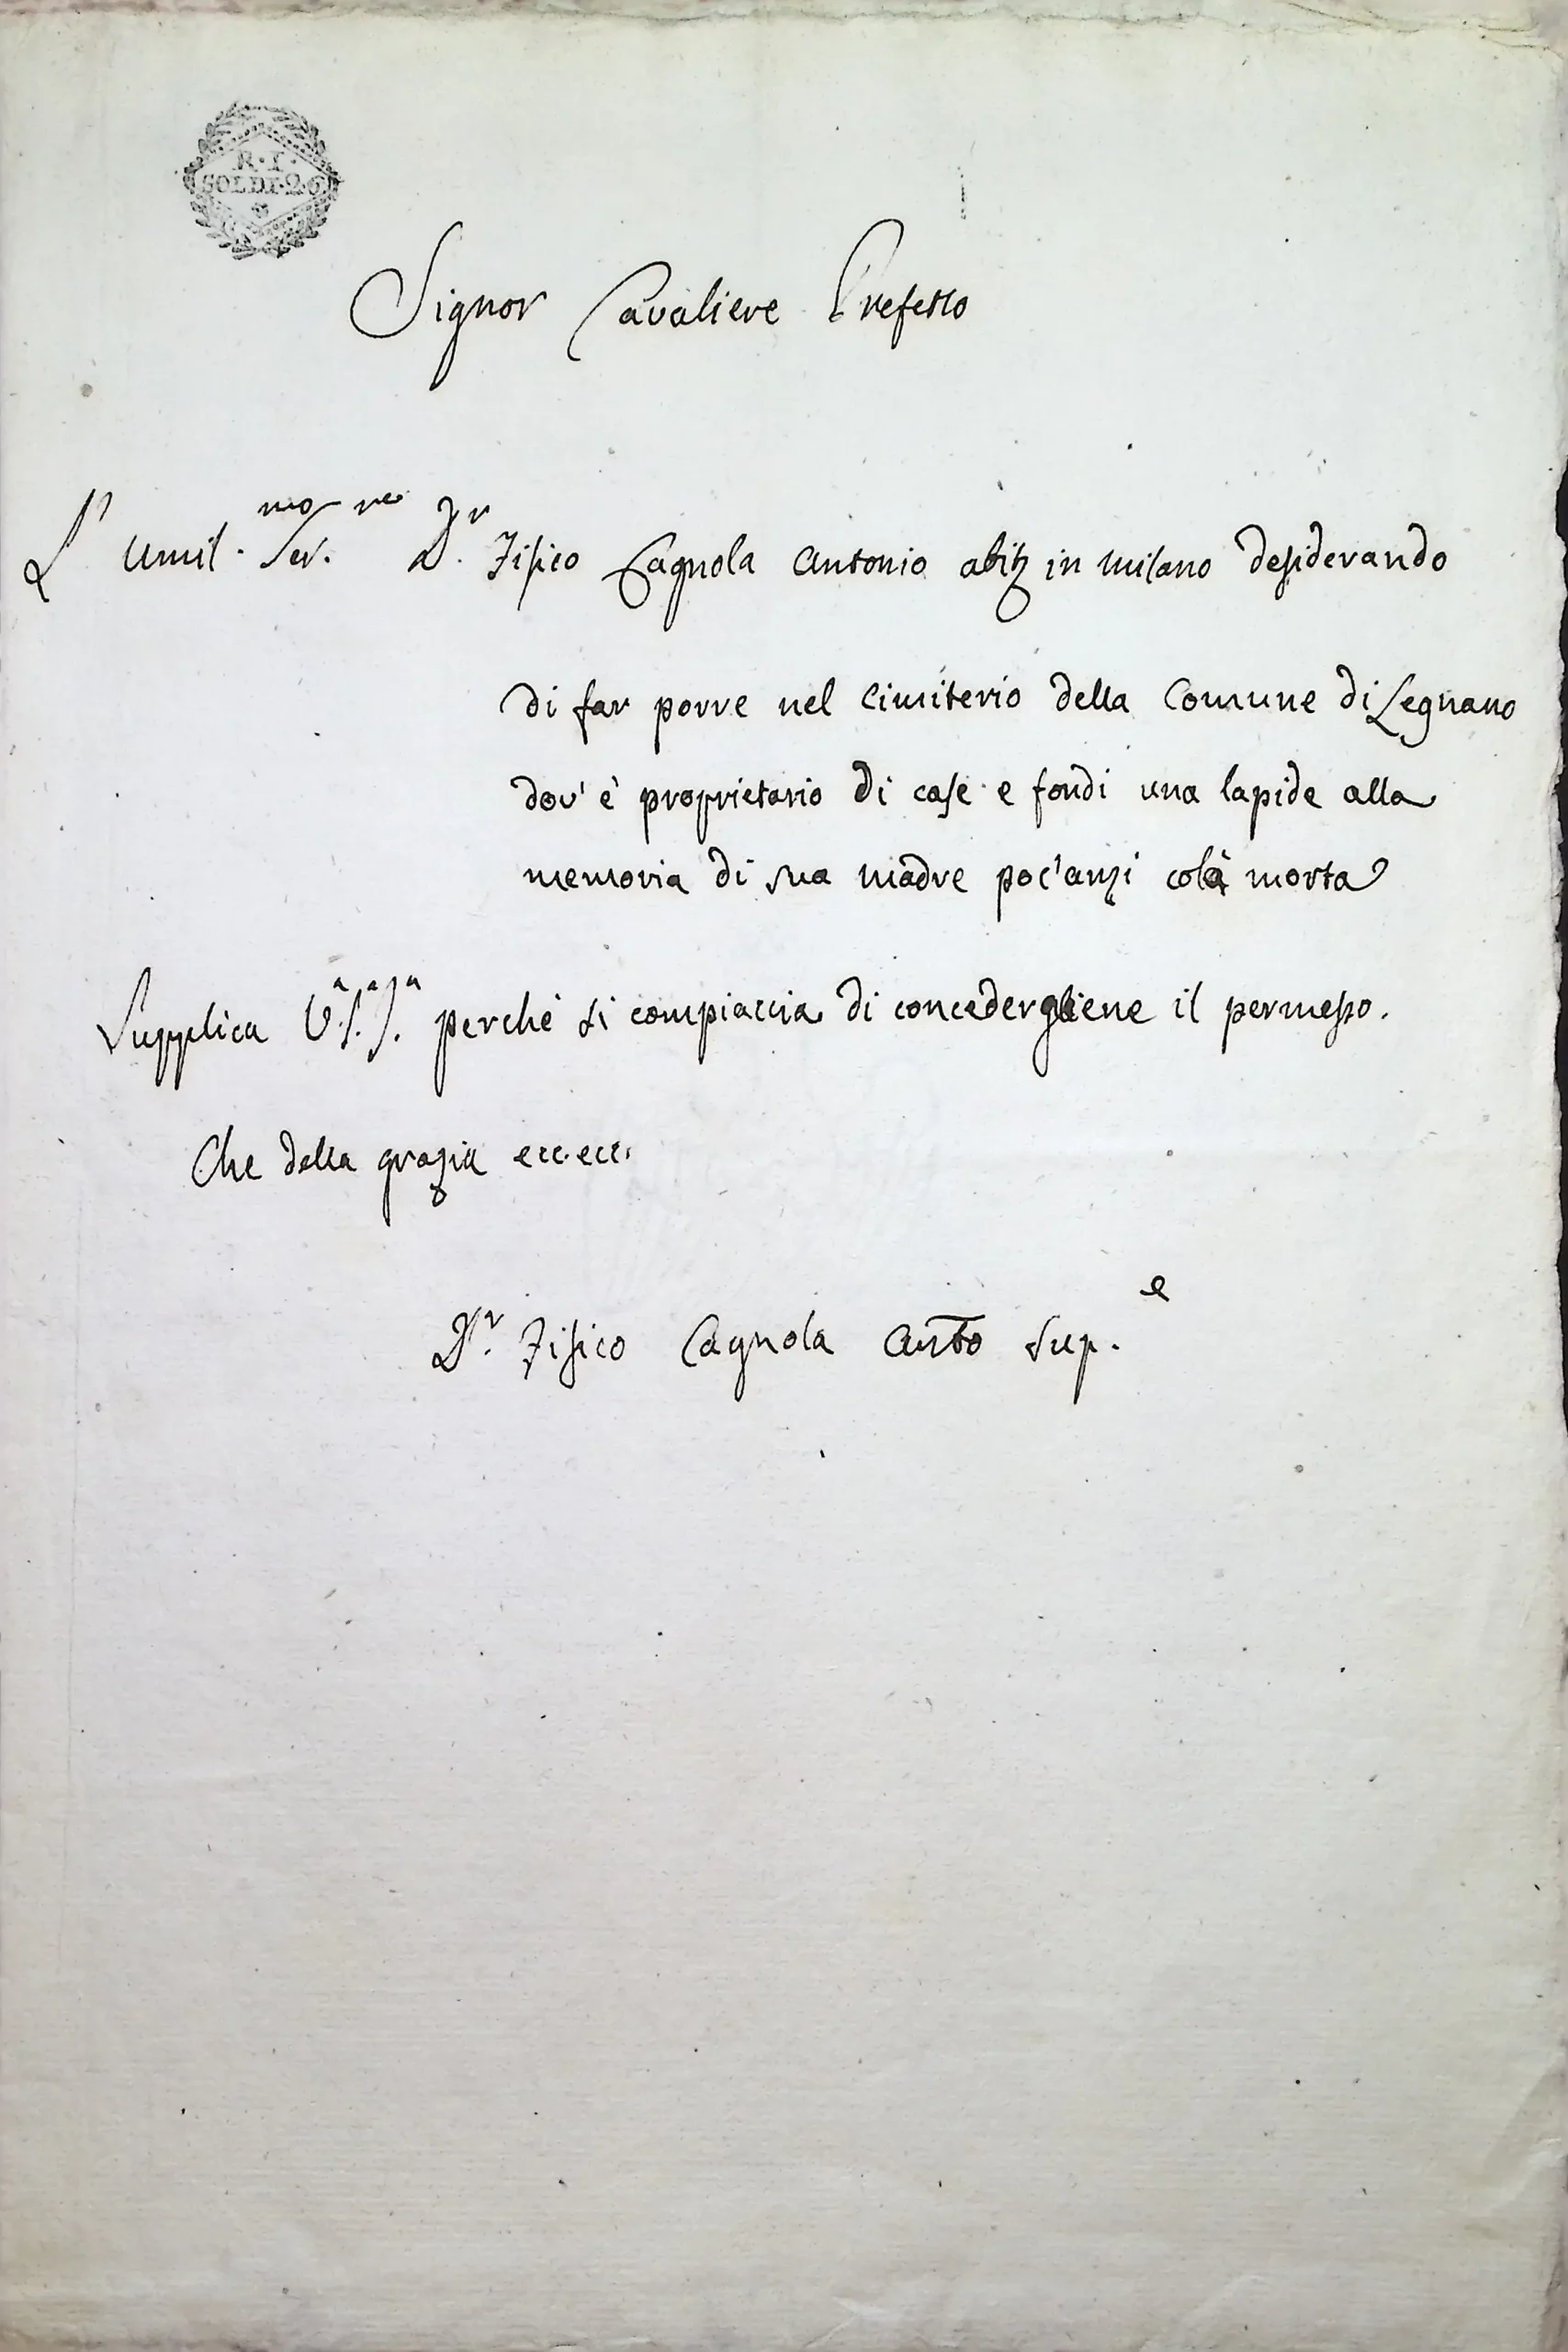 R. I.
SOLDI. 26
Signor Cavaliere Prefetto
L' Umil.mo Ser.re D.r Fisico Cagnola Antonio abit. in Milano desiderando
di far porre nel Cimiterio della Comune di Legnano
dov' è proprietario di case e fondi una lapide alla
memoria di sua madre poc'anzi colà morta
Supplica V.a S.a I.a perchè si compiaccia di concedergliene il permesso.
Che della grazia ecc. ecc.
D.r Fisico Cagnola Anto Sup.e